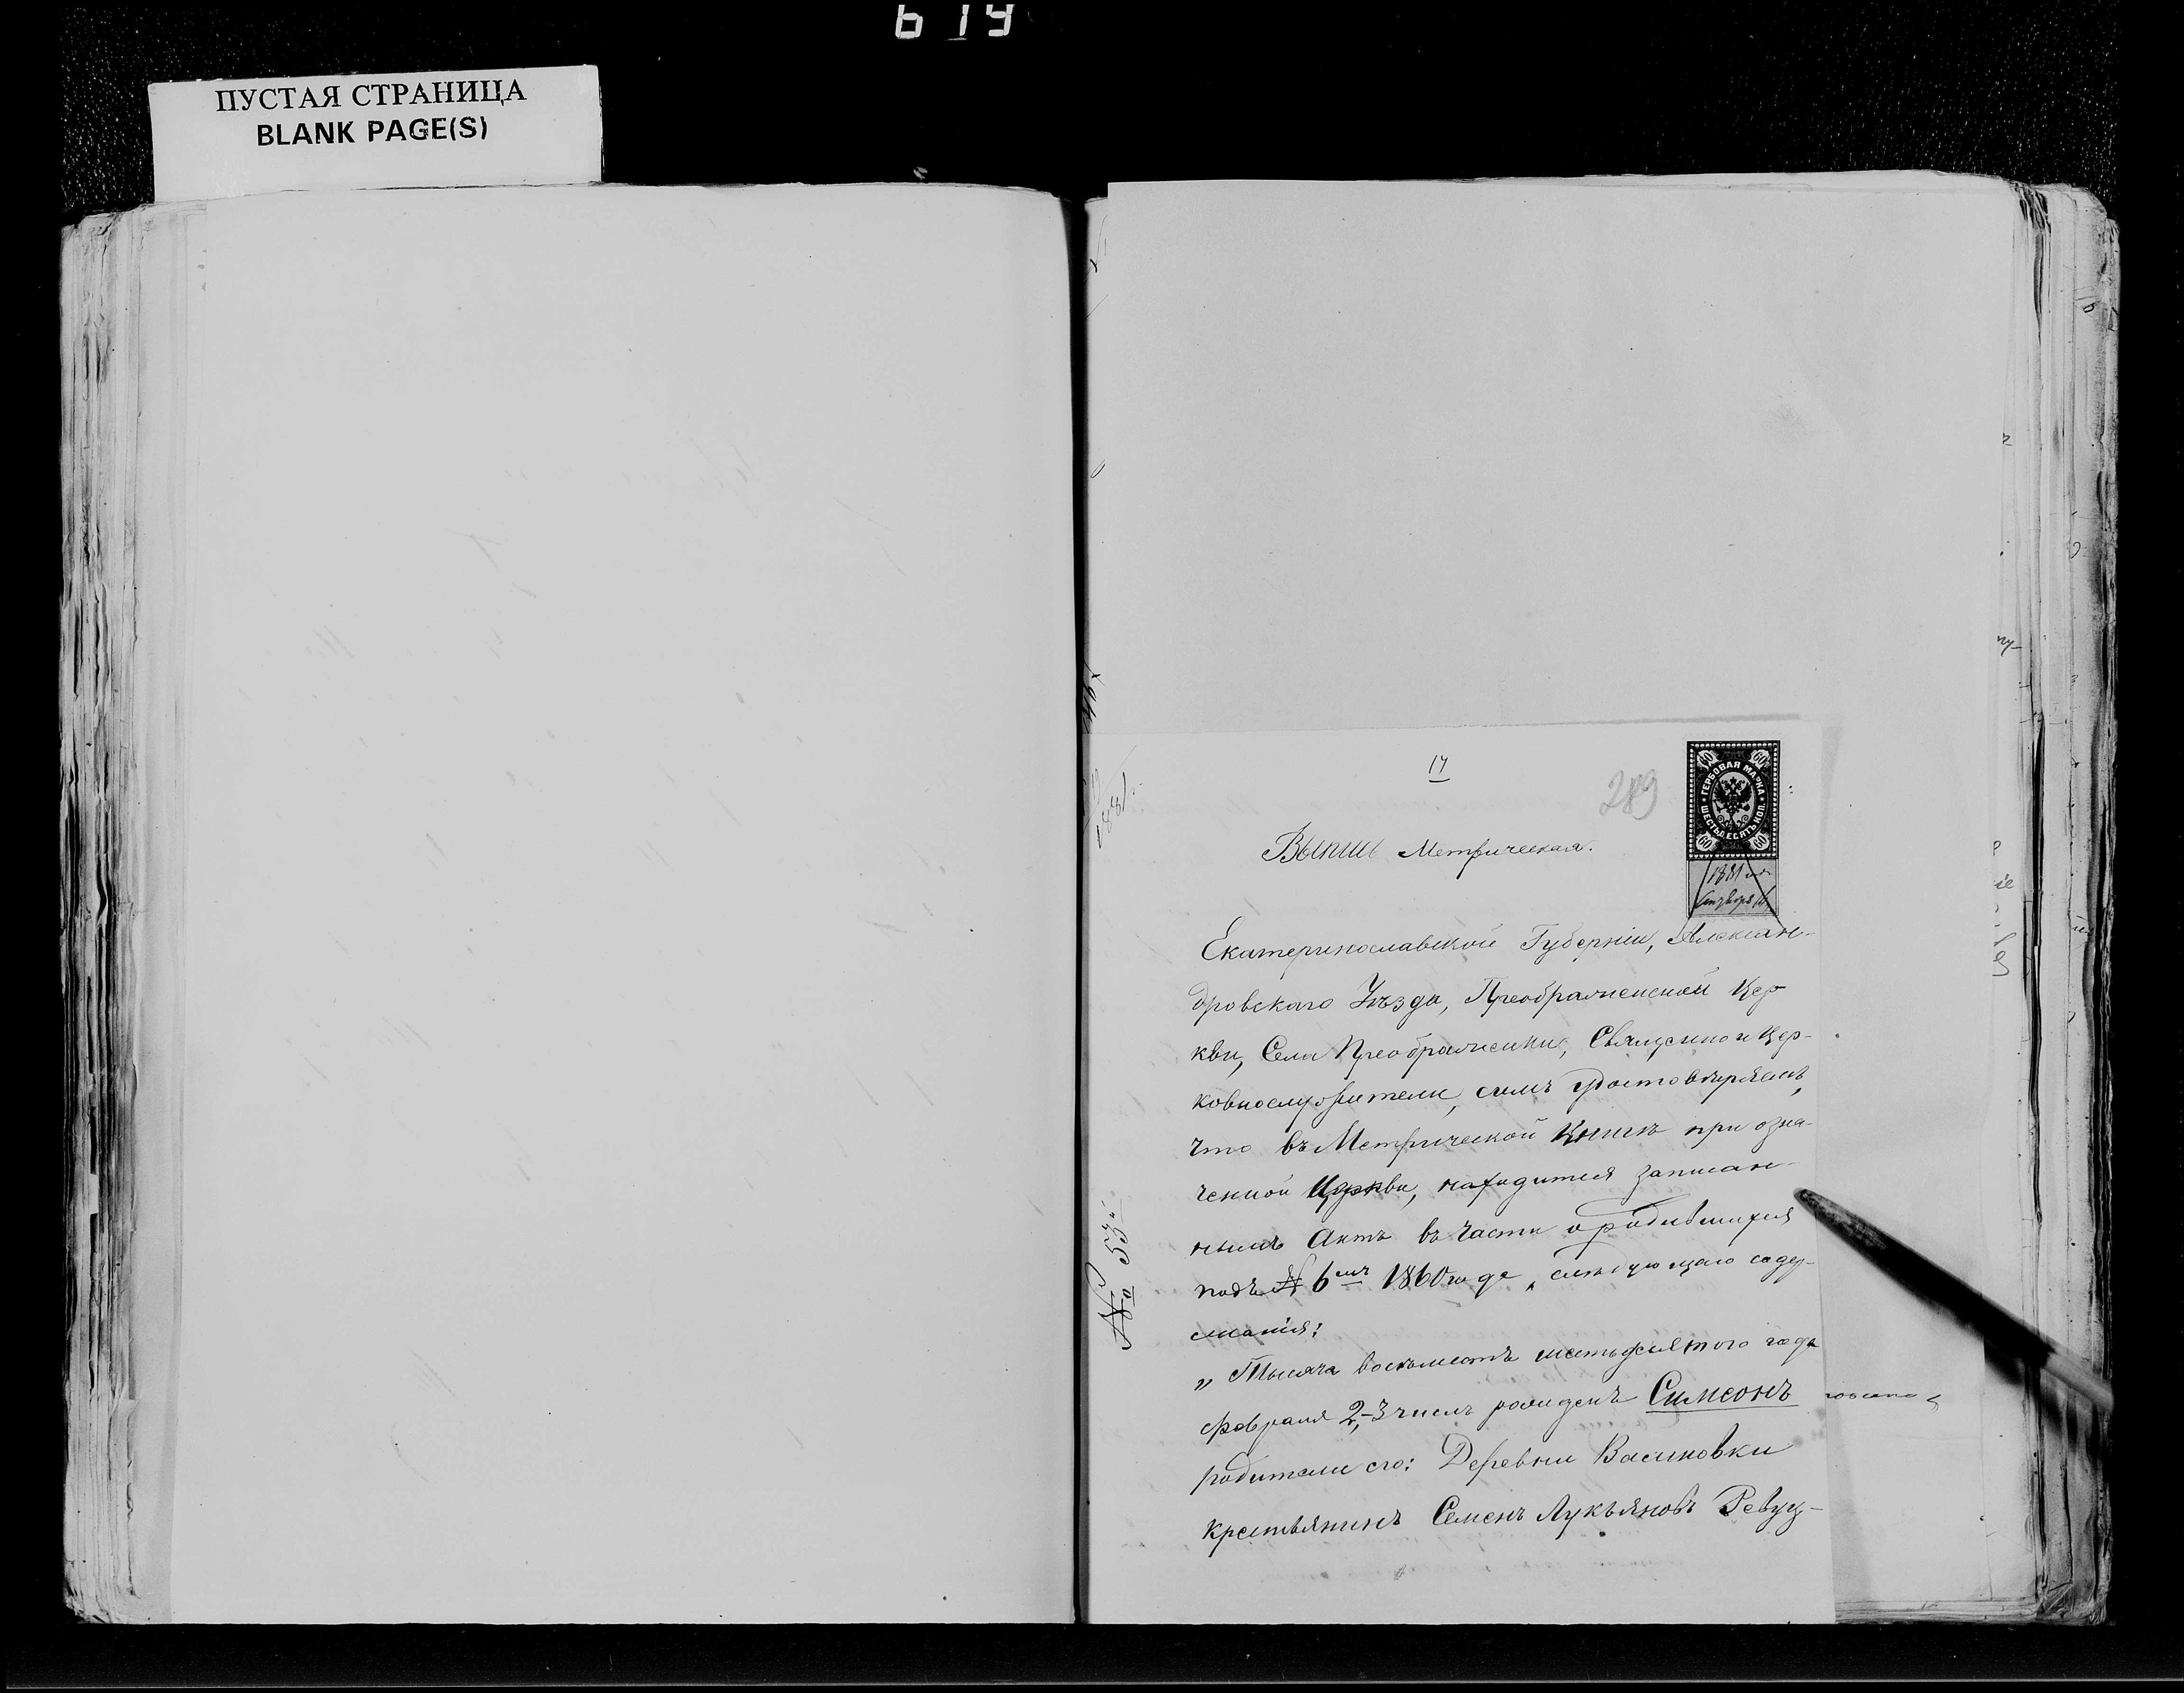 619
ПУСТАЯ СТРАНИЦА
BLANK PAGE(S)
17
289
60 60
ГЕРБОВАЯ МАРКА
ШЕСТЬДЕСЯТЪ КОП.
60 60
1881
Выпись Метрическая.
Екатеринославской Губерніи, Алексан-
дровскаго Уѣзда, Преображенской Цер
кви, Села Преображенки, Священно и Цер-
ковнослужители, симъ удостовѣряемъ,
что въ Метрической Книгѣ при озна-
ченной Церкви, находится записан-
нымъ Актъ въ части о родившихся
подъ № 6мъ 1860 года, слѣдующаго содер-
жанія:
„Тысяча восемьсотъ шестьдесятого года
Февраля 2,-3 числъ рожденъ Симеонъ
родители его: Деревни Васиновки
крестьянинъ Семенъ Лукьяновъ Ревуц-
№ 53.
1881.